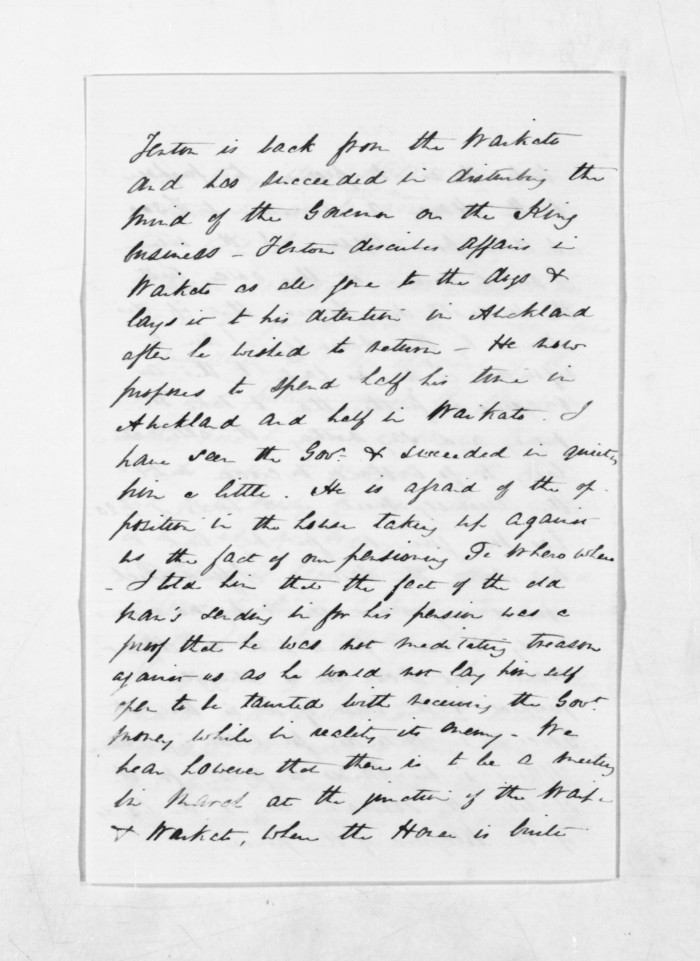 Fenton is back from the Waikato
and has succeeded in disturbing the
mind of the Governor on the King
business – Fenton describes affairs in
Waikato as all gone to the dogs &
lays it to his detention in Auckland
after he wished to return – He now
proposes to spend half his time in
Auckland and half in Waikato. I
have seen the Govr. & succeeded in quieting
him a little. He is afraid of the op-
position in the house taking up against
us the fact of our pensioning Te Whero whero
– I told him that the fact of the old
man's sending in for his pension was a
proof that he was not meditating treason
against us as he would not lay himself
open to be taunted with receiving the Govt.
money while in reality its enemy – We
hear however that there is to be a meeting
in March at the junction of the Waipa
& Waikato, when the House is built